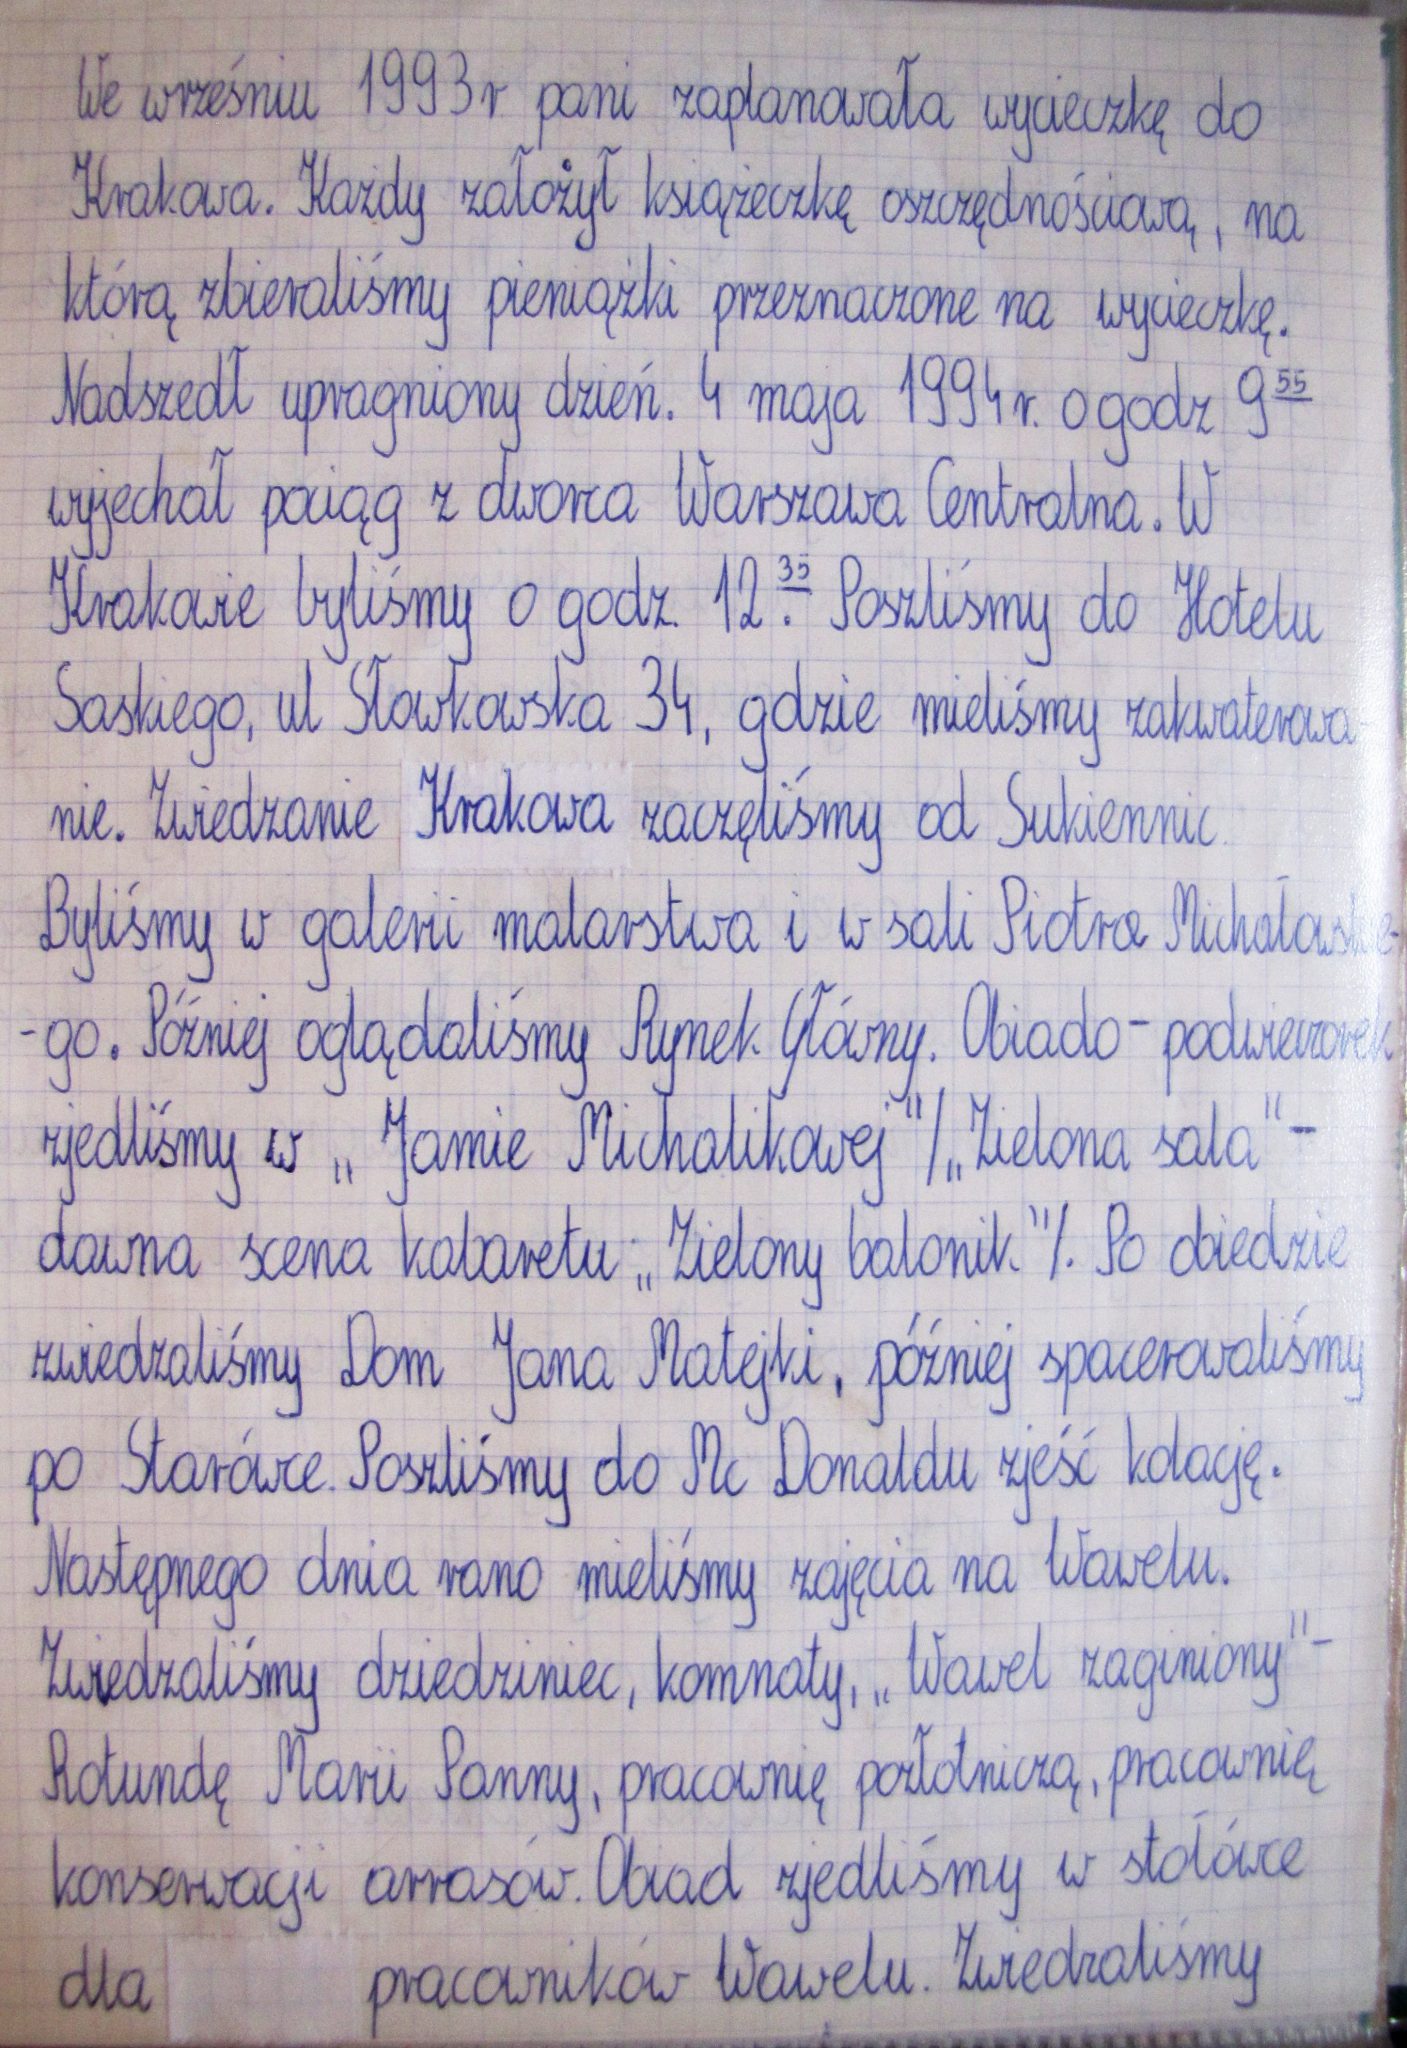 We wrześniu 1993 r pani zaplanowała wycieczkę do
Krakowa. Każdy założył książeczkę oszczędnościową, na
którą zbieraliśmy pieniążki przeznaczone na wycieczkę.
Nadszedł upragniony dzień. 4 maja 1994 r. o godz 9⁵⁵
wyjechał pociąg z dworca Warszawa Centralna. W
Krakowie byliśmy o godz. 12³⁵. Poszliśmy do Hotelu
Saskiego, ul Sławkowska 34, gdzie mieliśmy zakwaterowa-
nie. Zwiedzanie Krakowa zaczęliśmy od Sukiennic.
Byliśmy w galerii malarstwa i w sali Piotra Michałowskie-
-go. Później oglądaliśmy Rynek Główny. Obiado-podwieczorek
zjedliśmy w „Jamie Michalikowej"/„Zielona sala"-
dawna scena kabaretu „Zielony balonik"/. Po obiedzie
zwiedzaliśmy Dom Jana Matejki, później spacerowaliśmy
po Starówce. Poszliśmy do Mc Donaldu zjeść kolację.
Następnego dnia rano mieliśmy zajęcia na Wawelu.
Zwiedzaliśmy dziedziniec, komnaty, „Wawel zaginiony"-
Rotundę Marii Panny, pracownię pozłotniczą, pracownię
konserwacji arrasów. Obiad zjedliśmy w stołówce
dla pracowników Wawelu. Zwiedzaliśmy